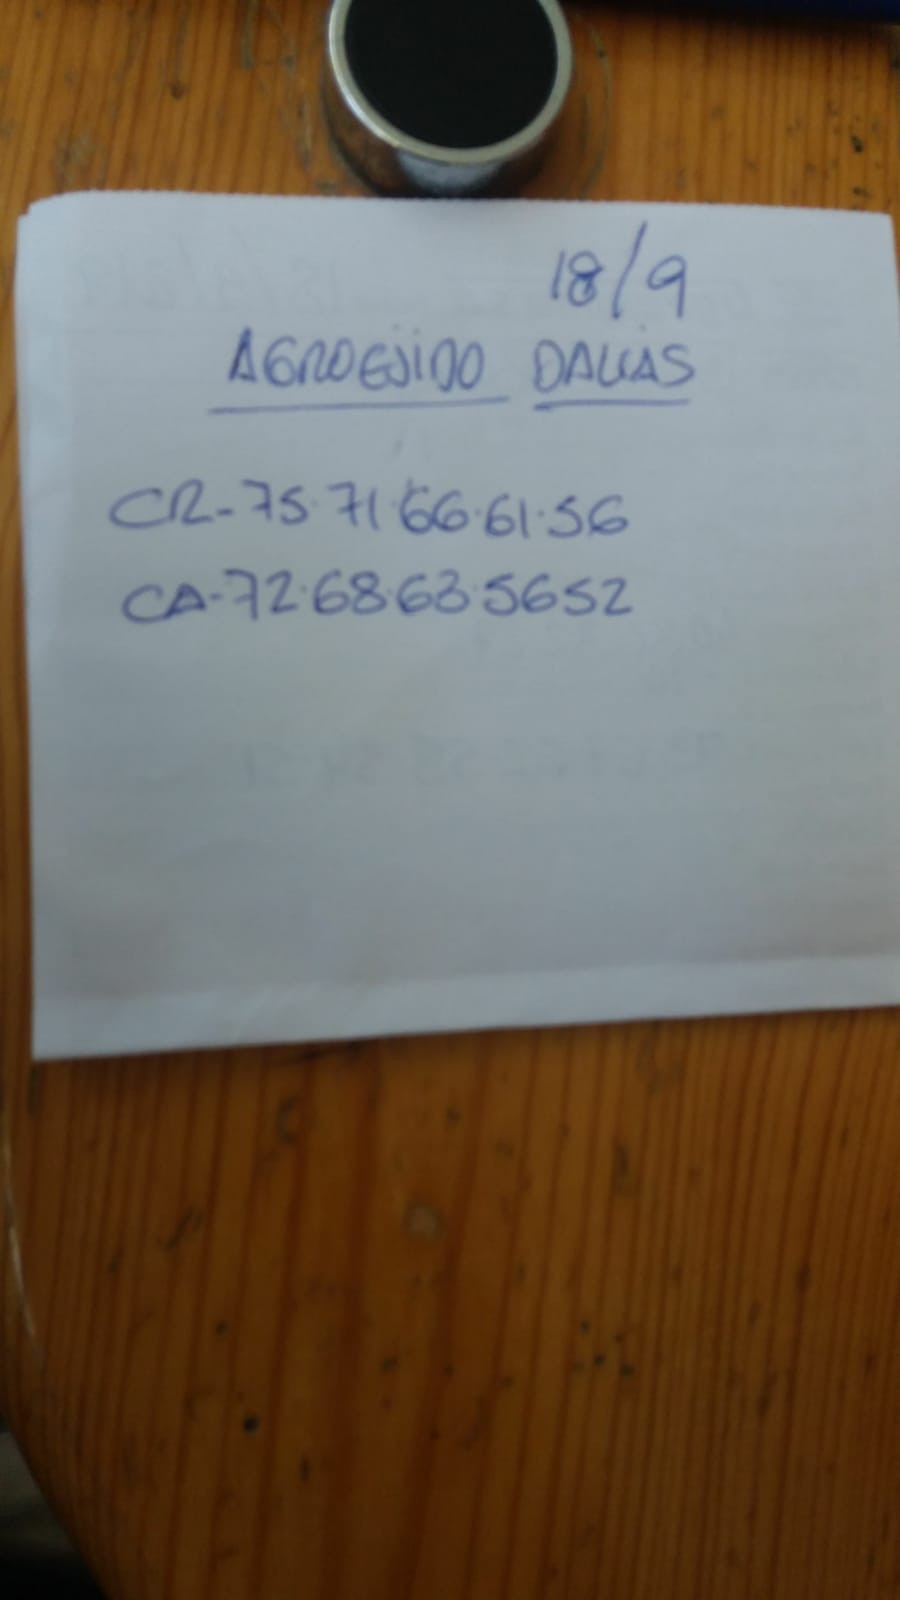 18/9
AGROEJIDO DALIAS
CR-75.71.66.61.56
CA-72.68.63.56 52